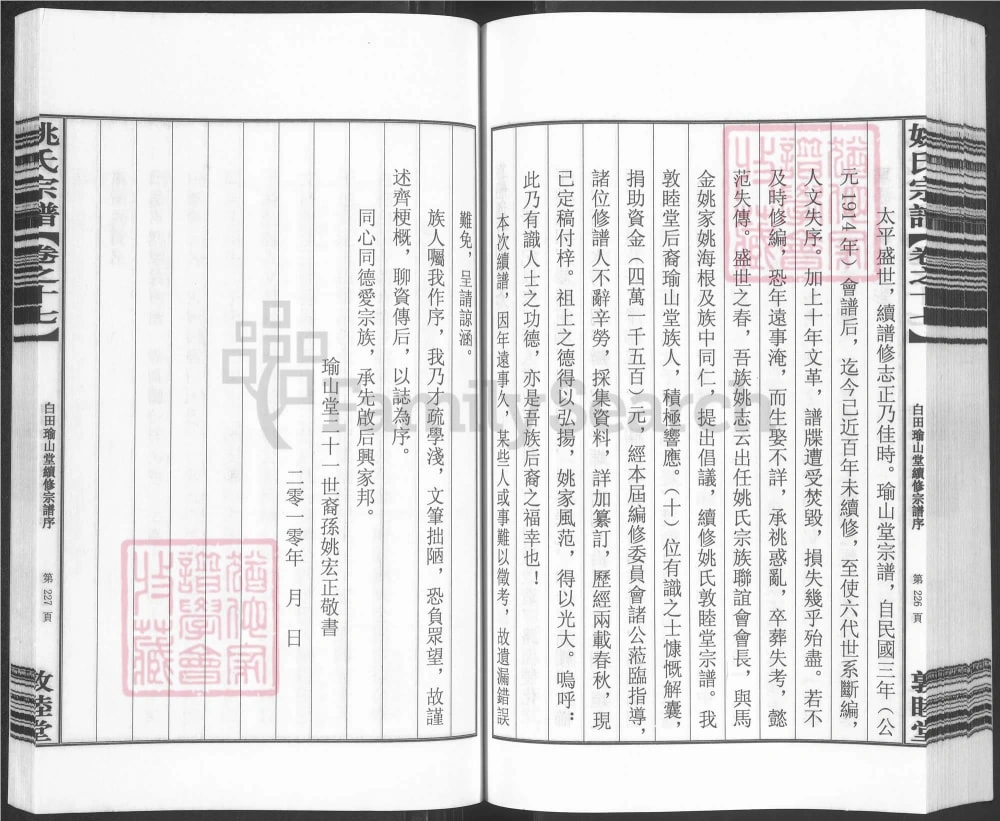 姚氏宗譜【卷之十七】 白田瑜山堂續修宗譜序 第226頁 敦睦堂
太平盛世，續譜修志正乃佳時。瑜山堂宗譜，自民國三年（公
元1914年）會譜后，迄今已近百年未續修，至使六代世系斷編，
人文失序。加上十年文革，譜牒遭受焚毀，損失幾乎殆盡。若不
及時修編，恐年遠事淹，而生娶不詳，承祧惑亂，卒葬失考，懿
范失傳。盛世之春，吾族姚志云出任姚氏宗族聯誼會會長，與馬
金姚家姚海根及族中同仁，提出倡議，續修姚氏敦睦堂宗譜。我
敦睦堂后裔瑜山堂族人，積極響應。（十）位有識之士慷慨解囊，
捐助資金（四萬一千五百）元，經本屆編修委員會諸公蒞臨指導，
諸位修譜人不辭辛勞，採集資料，詳加纂訂，歷經兩載春秋，現
已定稿付梓。祖上之德得以弘揚，姚家風范，得以光大。嗚呼：
此乃有識人士之功德，亦是吾族后裔之福幸也！
本次續譜，因年遠事久，某些人或事難以徵考，故遺漏錯誤
難免，呈請諒涵。
族人囑我作序，我乃才疏學淺，文筆拙陋，恐負眾望，故謹
述齊梗概，聊資傳后，以誌為序。
同心同德愛宗族，承先啟后興家邦。
瑜山堂二十一世裔孫姚宏正敬書
二零一零年 月 日
姚氏宗譜【卷之十七】 白田瑜山堂續修宗譜序 第227頁 敦睦堂
FamilySearch